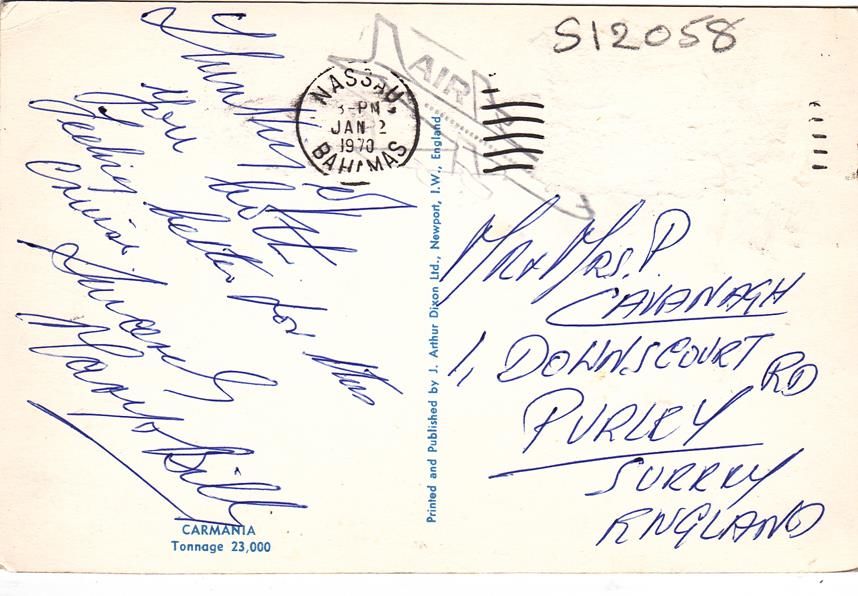 S12058
AIR
NASSAU,
3-PM
JAN 2
1970
BAHAMAS
you both
feeling better for this
Cruise
Sincerely
Bill
Mr & Mrs. P
CAVANAGH
1, DOWNSCOURT RD
PURLEY
SURREY
ENGLAND
Printed and Published by J. Arthur Dixon Ltd., Newport, I.W., England
CARMANIA
Tonnage 23,000